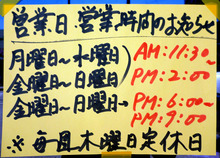 営業日 営業時間のお知らせ
月曜日〜水曜日
金曜日〜日曜日
AM:11:30〜
PM:2:00
金曜日〜日曜日→
PM:6:00〜
PM:9:00
※毎週木曜日定休日